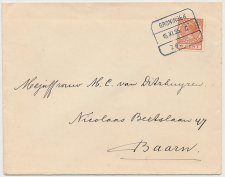 GRONINGEN
Mejuffrouw M. C. van Ditzhuyzen
Nicolaas Beetslaan 47
Baarn